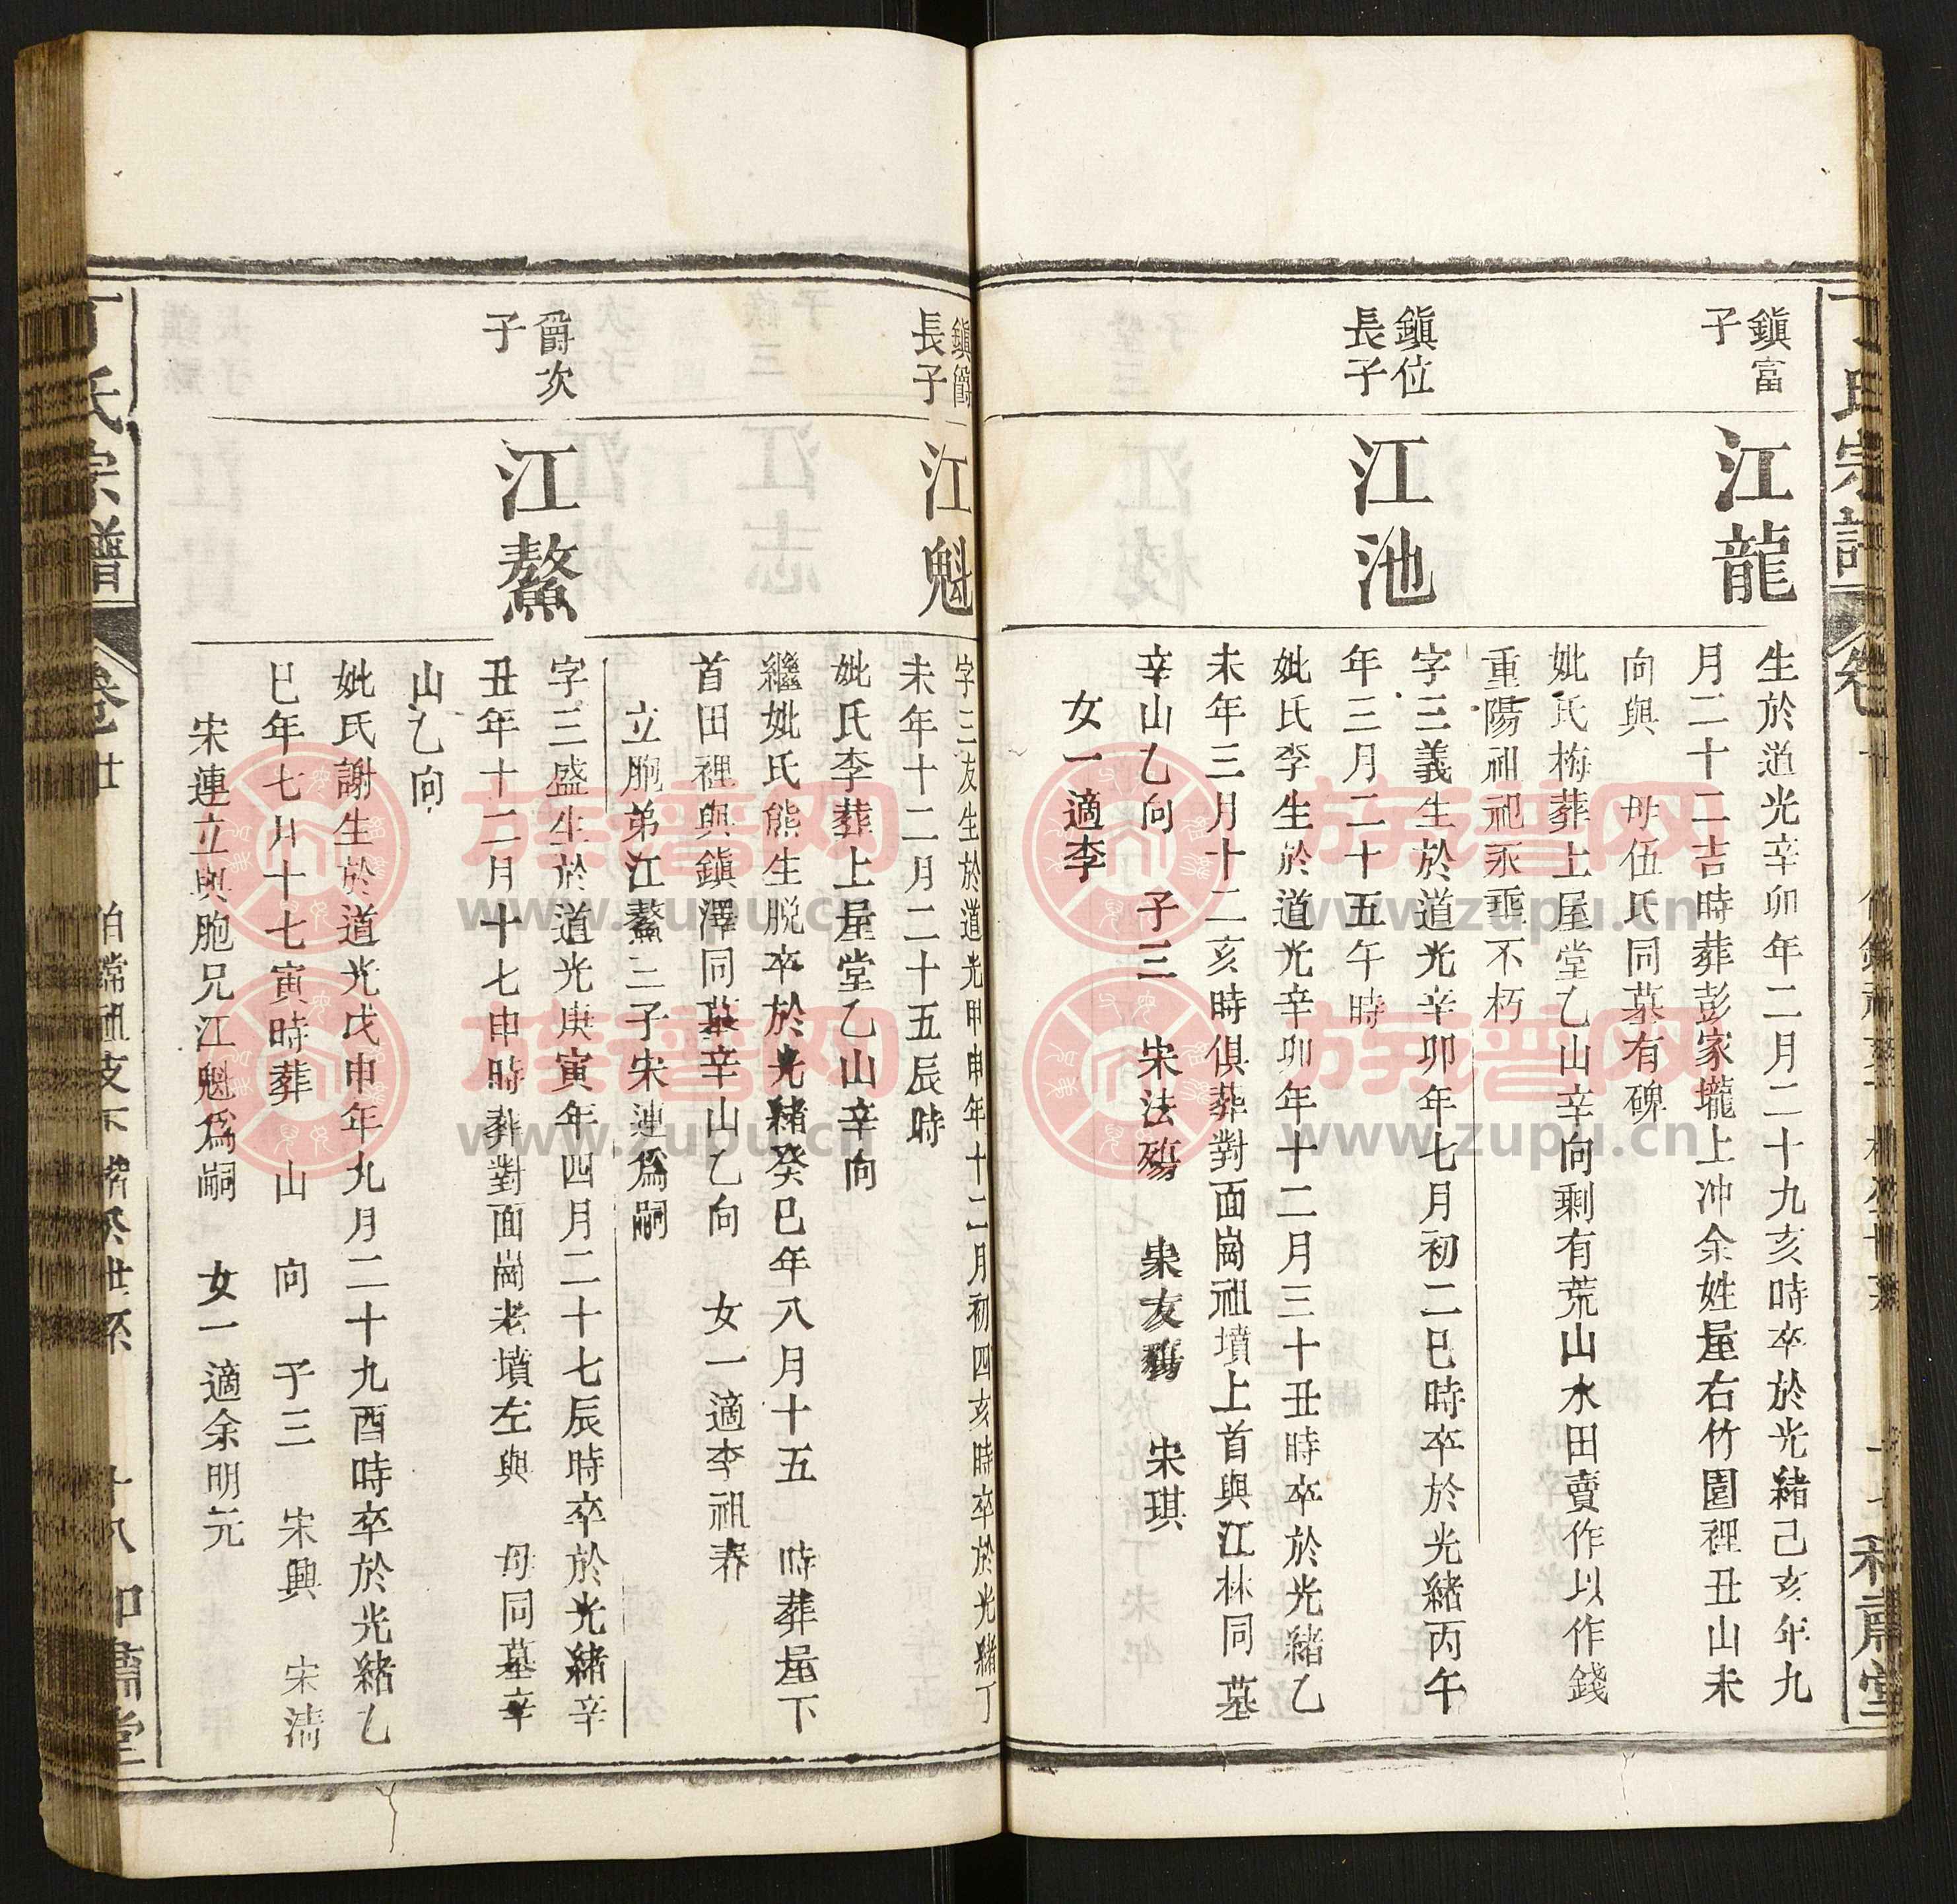 鎮富
子
江龍
生於道光辛卯年二月二十九亥時卒於光緒己亥年九
月二十二吉時葬彭家壠上冲余姓屋右竹園裡丑山未
向與　母伍氏同墓有碑
妣氏梅葬上屋堂乙山辛向剩有荒山水田賣作以作錢
重陽祖祀永垂不朽
鎮位
長子
江池
字三義生於道光辛卯年七月初二巳時卒於光緒丙午
年三月二十五午時
妣氏李生於道光辛卯年十二月三十丑時卒於光緒乙
未年三月十二亥時俱葬對面崗祖墳上首與江林同墓
辛山乙向　子三　宋法殤　宋友殤　宋琪
女一適李
鎮爵
長子
江魁
字三友生於道光甲申年十二月初四亥時卒於光緒丁
未年十二月二十五辰時
妣氏李葬上屋堂乙山辛向
繼妣氏熊生脱卒於光緒癸巳年八月十五　時葬屋下
首田裡與鎮澤同墓辛山乙向　女一適李祖春
立胞弟江鰲三子宋連爲嗣
爵次
子
江鰲
字三盛生於道光庚寅年四月二十七辰時卒於光緒辛
丑年十二月十七申時葬對面崗老墳左與　母同墓辛
山乙向
妣氏謝生於道光戊申年九月二十九酉時卒於光緒乙
巳年七月十七寅時葬　山　向　子三　宋興　宋清
宋連立與胞兄江魁爲嗣　女一適余明元
丁氏宗譜
卷廿
十八
族譜网
www.zupu.cn
族譜网
www.zupu.cn
族譜网
www.zupu.cn
族譜网
www.zupu.cn